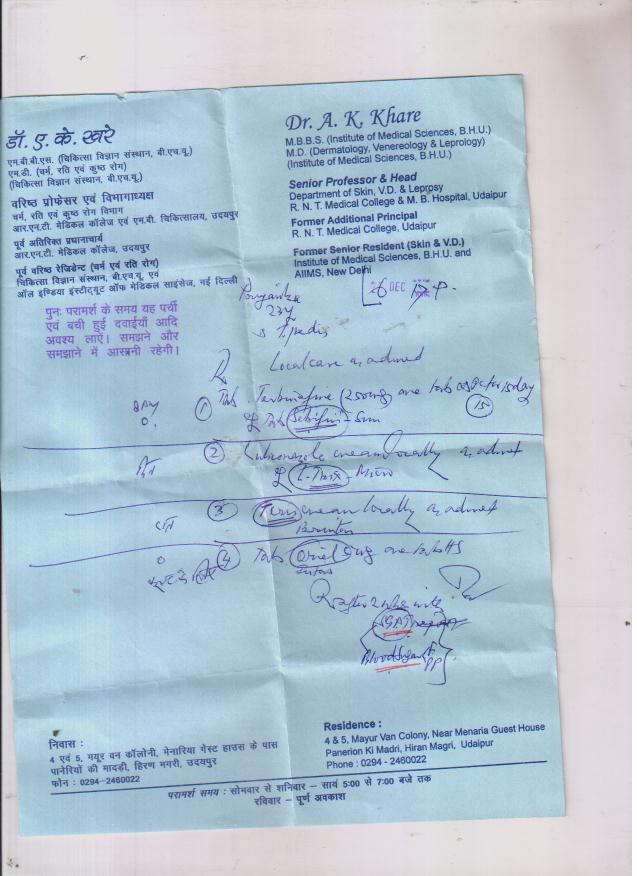 डॉ. ए. के. खरे
एम.बी.बी.एस. (चिकित्सा विज्ञान संस्थान, बी.एच.यू.)
एम.डी. (चर्म, रति एवं कुष्ठ रोग)
(चिकित्सा विज्ञान संस्थान, बी.एच.यू.)
वरिष्ठ प्रोफेसर एवं विभागाध्यक्ष
चर्म, रति एवं कुष्ठ रोग विभाग
आर.एन.टी. मेडिकल कॉलेज एवं एम.बी. चिकित्सालय, उदयपुर
पूर्व अतिरिक्त प्रधानाचार्य
आर.एन.टी. मेडिकल कॉलेज, उदयपुर
पूर्व वरिष्ठ रेजिडेन्ट (चर्म एवं रति रोग)
चिकित्सा विज्ञान संस्थान, बी.एच.यू. एवं
ऑल इण्डिया इंस्टीट्यूट ऑफ मेडिकल साइंसेज, नई दिल्ली
पुनः परामर्श के समय यह पर्ची
एवं बची हुई दवाईयाँ आदि
अवश्य लाऐं। समझने और
समझाने में आसानी रहेगी।
Dr. A. K. Khare
M.B.B.S. (Institute of Medical Sciences, B.H.U.)
M.D. (Dermatology, Venereology & Leprology)
(Institute of Medical Sciences, B.H.U.)
Senior Professor & Head
Department of Skin, V.D. & Leprosy
R. N. T. Medical College & M. B. Hospital, Udaipur
Former Additional Principal
R. N. T. Medical College, Udaipur
Former Senior Resident (Skin & V.D.)
Institute of Medical Sciences, B.H.U. and
AIIMS, New Delhi
26 DEC
23y
T. pedis
Local care as advised
1 Tab. Terbinafine (250mg) one tab 15 day
15
Tab
2 cream locally as advised
Micro
3 cream locally as advised
4 Tab 5mg one tab HS
R after 2 wks with
SGPT
Blood Sugar F
PP
निवास :
4 एवं 5, मयूर वन कॉलोनी, मेनारिया गेस्ट हाउस के पास
पानेरियों की मादड़ी, हिरण मगरी, उदयपुर
फोन : 0294-2460022
Residence :
4 & 5, Mayur Van Colony, Near Menaria Guest House
Panerion Ki Madri, Hiran Magri, Udaipur
Phone : 0294 - 2460022
परामर्श समय : सोमवार से शनिवार – सायं 5:00 से 7:00 बजे तक
रविवार – पूर्ण अवकाश